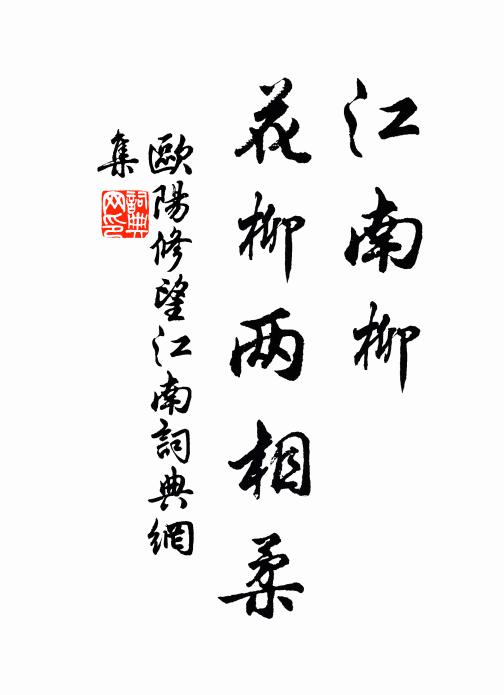 江南柳
花柳两相柔
歐陽修望江南詞典網
集
詞典网印